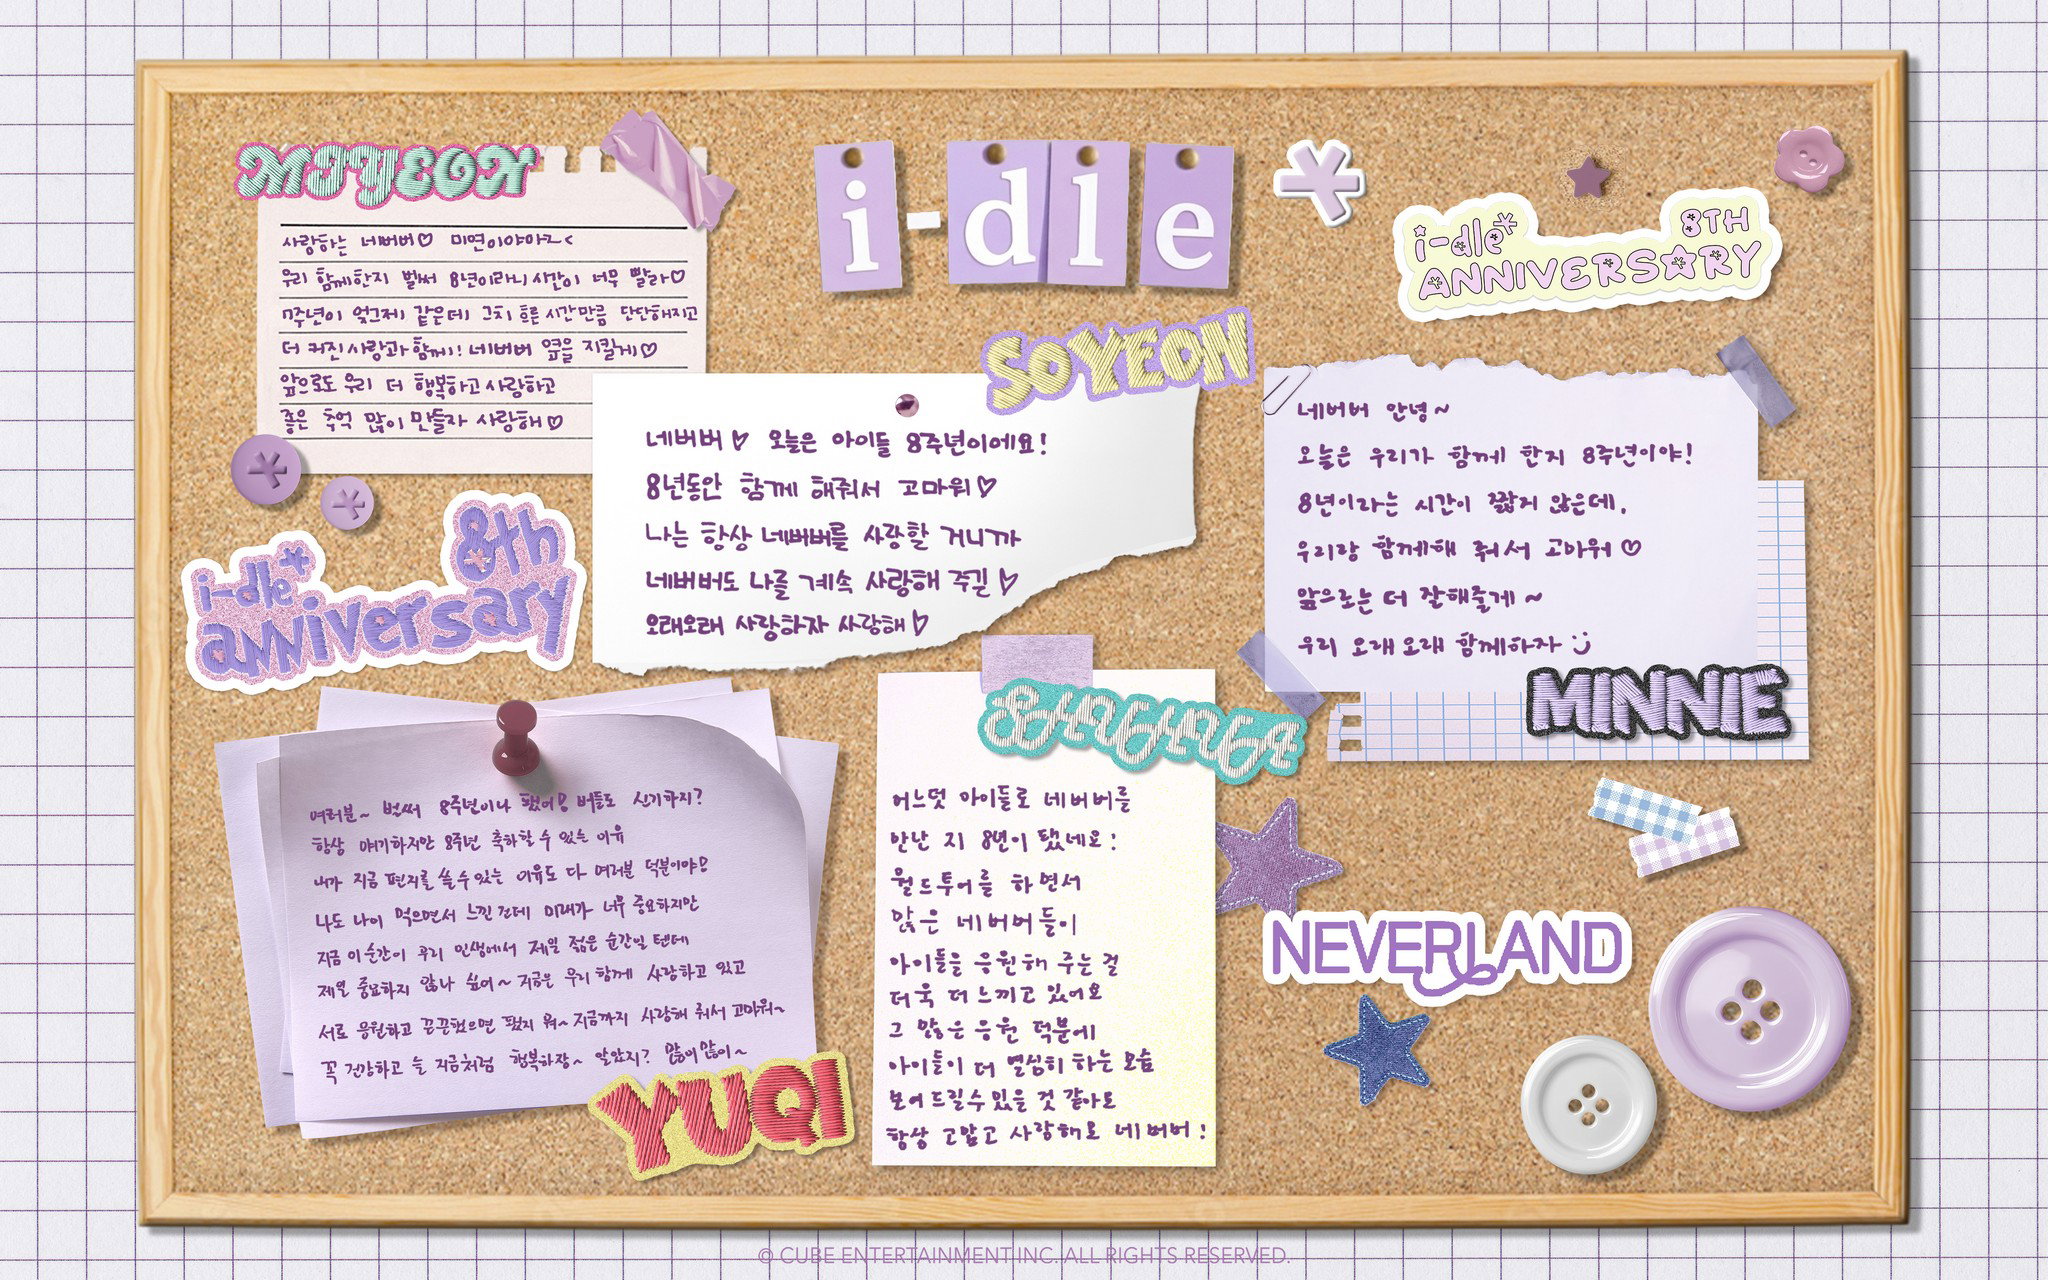 MIYEON
사랑하는 네버버♡ 미연이야아~<
우리 함께한지 벌써 8년이라니 시간이 너무 빨라♡
7주년이 엊그제 같은데 그치 흐른 시간만큼 단단해지고
더 커진 사랑과 함께! 네버버 옆을 지킬게♡
앞으로도 우리 더 행복하고 사랑하고
좋은 추억 많이 만들자 사랑해♡
i-dle*
i-dle* 8TH
ANNIVERSARY
SOYEON
네버버♡ 오늘은 아이들 8주년이에요!
8년동안 함께 해줘서 고마워♡
나는 항상 네버버를 사랑할 거니까
네버버도 나를 계속 사랑해 주긴♡
오래오래 사랑하자 사랑해♡
네버버 안녕~
오늘은 우리가 함께 한지 8주년이야!
8년이라는 시간이 짧지 않은데,
우리랑 함께해 줘서 고마워♡
앞으로는 더 잘해줄게~
우리 오래오래 함께하자 :)
MINNIE
i-dle* 8th
anniversary
여러분~ 벌써 8주년이나 됐어! 버들도 신기하지?
항상 얘기하지만 8주년 축하할 수 있는 이유
내가 지금 편지를 쓸 수 있는 이유도 다 여러분 덕분이야!
나도 나이 먹으면서 느낀 건데 미래가 너무 중요하지만
지금 이 순간이 우리 인생에서 제일 젊은 순간일 텐데
제일 중요하지 않나 싶어~ 지금은 우리 함께 사랑하고 있고
서로 응원하고 끈끈했으면 됐지 뭐~ 지금까지 사랑해 줘서 고마워~
꼭 건강하고 늘 지금처럼 행복하장~ 알았지? 많이많이~
YUQI
SHUHUA
어느덧 아이들로 네버버를
만난 지 8년이 됐네요!
월드투어를 하면서
많은 네버버들이
아이들을 응원해 주는 걸
더욱 더 느끼고 있어요
그 많은 응원 덕분에
아이들이 더 열심히 하는 모습
보여 드릴 수 있을 것 같아요
항상 고맙고 사랑해요 네버버!
NEVERLAND
© CUBE ENTERTAINMENT INC. ALL RIGHTS RESERVED.